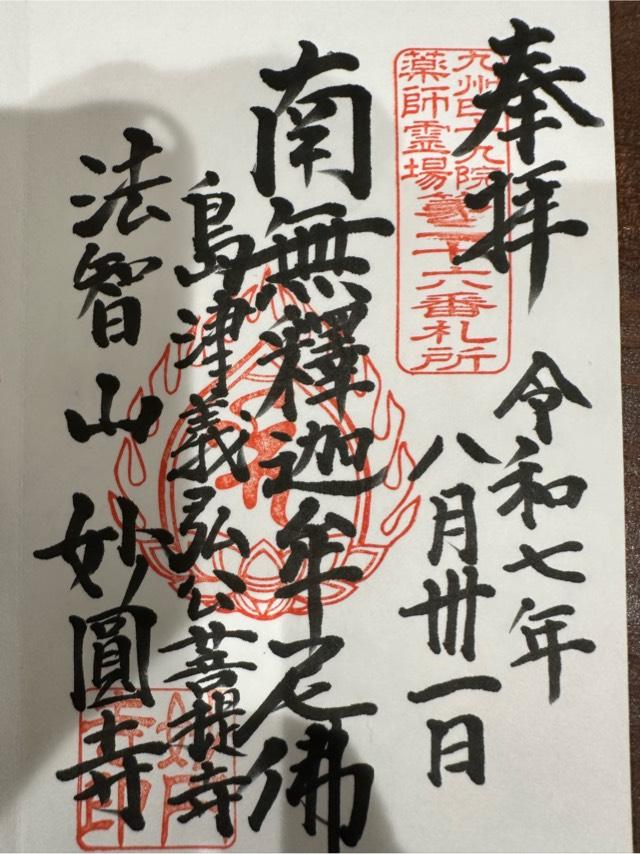 奉拝
九州四十九院
薬師霊場
第二十六番札所
令和七年
八月卅一日
南無釋迦牟尼佛
島津義弘公菩提寺
法智山妙圓寺